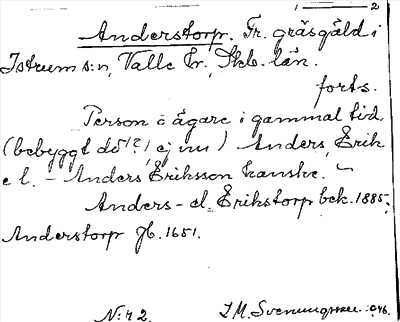 1 — 2
Anderstorp. Fr. gräsgäld i
Istrum s:n, Valle hr., Skb. län.
forts.
Person o ägare i gammal tid
(bebyggt då(?), ej nu) Anders, Erik
el. – Anders Eriksson kanske.
Anders- el. Erikstorp bek. 1885;
Anderstorp jb. 1651.
N:r 2. J.M. Svenungsson: 1946.